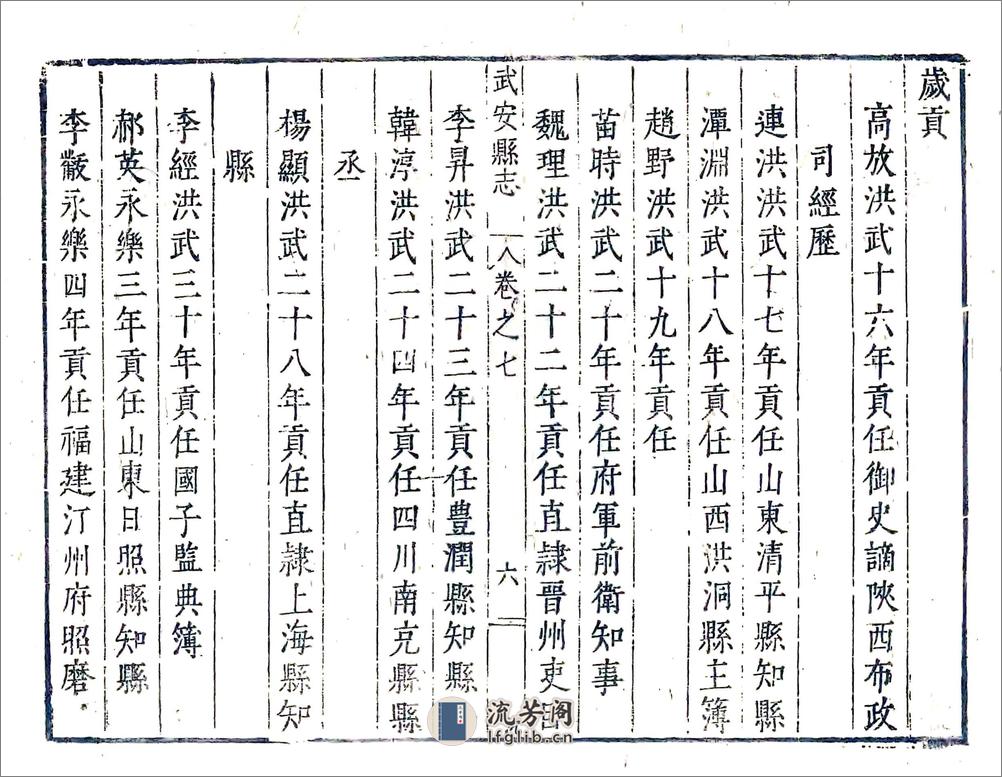 歲貢
高放洪武十六年貢任御史謫陝西布政
司經歷
連洪洪武十七年貢任山東清平縣知縣
潭淵洪武十八年貢任山西洪洞縣主簿
趙野洪武十九年貢任
苗時洪武二十年貢任府軍前衛知事
魏理洪武二十二年貢任直隷晉州吏目
武安縣志 卷之七 六
李昇洪武二十三年貢任豊潤縣知縣
韓淳洪武二十四年貢任四川南充縣縣
丞
楊顯洪武二十八年貢任直隷上海縣知
縣
李經洪武三十年貢任國子監典簿
郝英永樂三年貢任山東日照縣知縣
李黻永樂四年貢任福建汀州府照磨
流芳阁
lfglib.cn